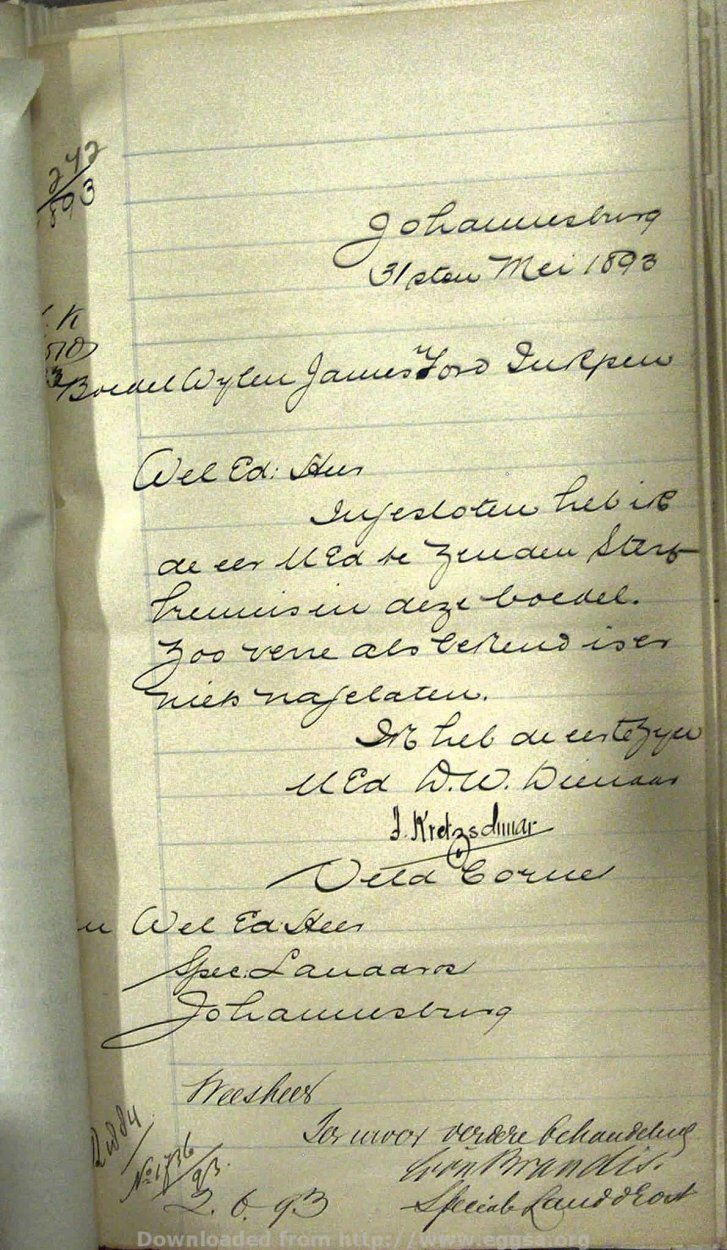 242
1893
Johannesburg
31sten Mei 1893
Boedel Wylen James Ford Inkpen
Wel Ed: Heer
Ingesloten heb ik
de eer UEd te zenden Sterf
kennis in deze boedel.
Zoo verre als bekend is er
niets nagelaten.
Ik heb de eer te zyn
UEd D.W. Dienaar
J. Kretzschmar
Veld Cornet
Wel Ed Heer
Spec. Landdros
Johannesburg
Weesheer
Ter uwer verdere behandeling
von Brandis.
No 1736/93.
2.6.93
Speciale Landdrost
Downloaded from http://www.eggsa.org